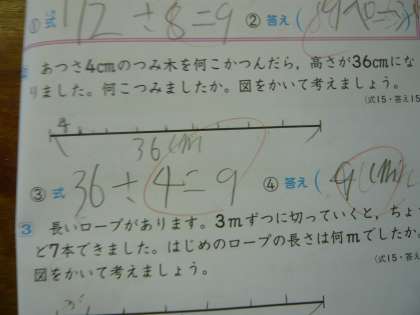 ① 式 72÷8=9 ② 答え(
あつさ4cmのつみ木を何こかつんだら,高さが36cmにな
りました。何こつみましたか。図をかいて考えましょう。
(式15・答え15
4
36cm
③ 式 36÷4=9 ④ 答え(
3 長いロープがあります。3mずつに切っていくと,ちょ
ど7本できました。はじめのロープの長さは何mでしたか。
図をかいて考えましょう。
(式15・答え